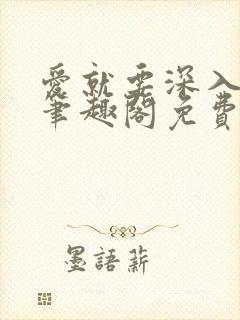 愛就要深入
筆趣閣免費
墨語薪